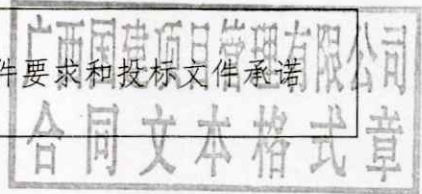 广西国建项目管理有限公司
件要求和投标文件承诺
合同文本格式章